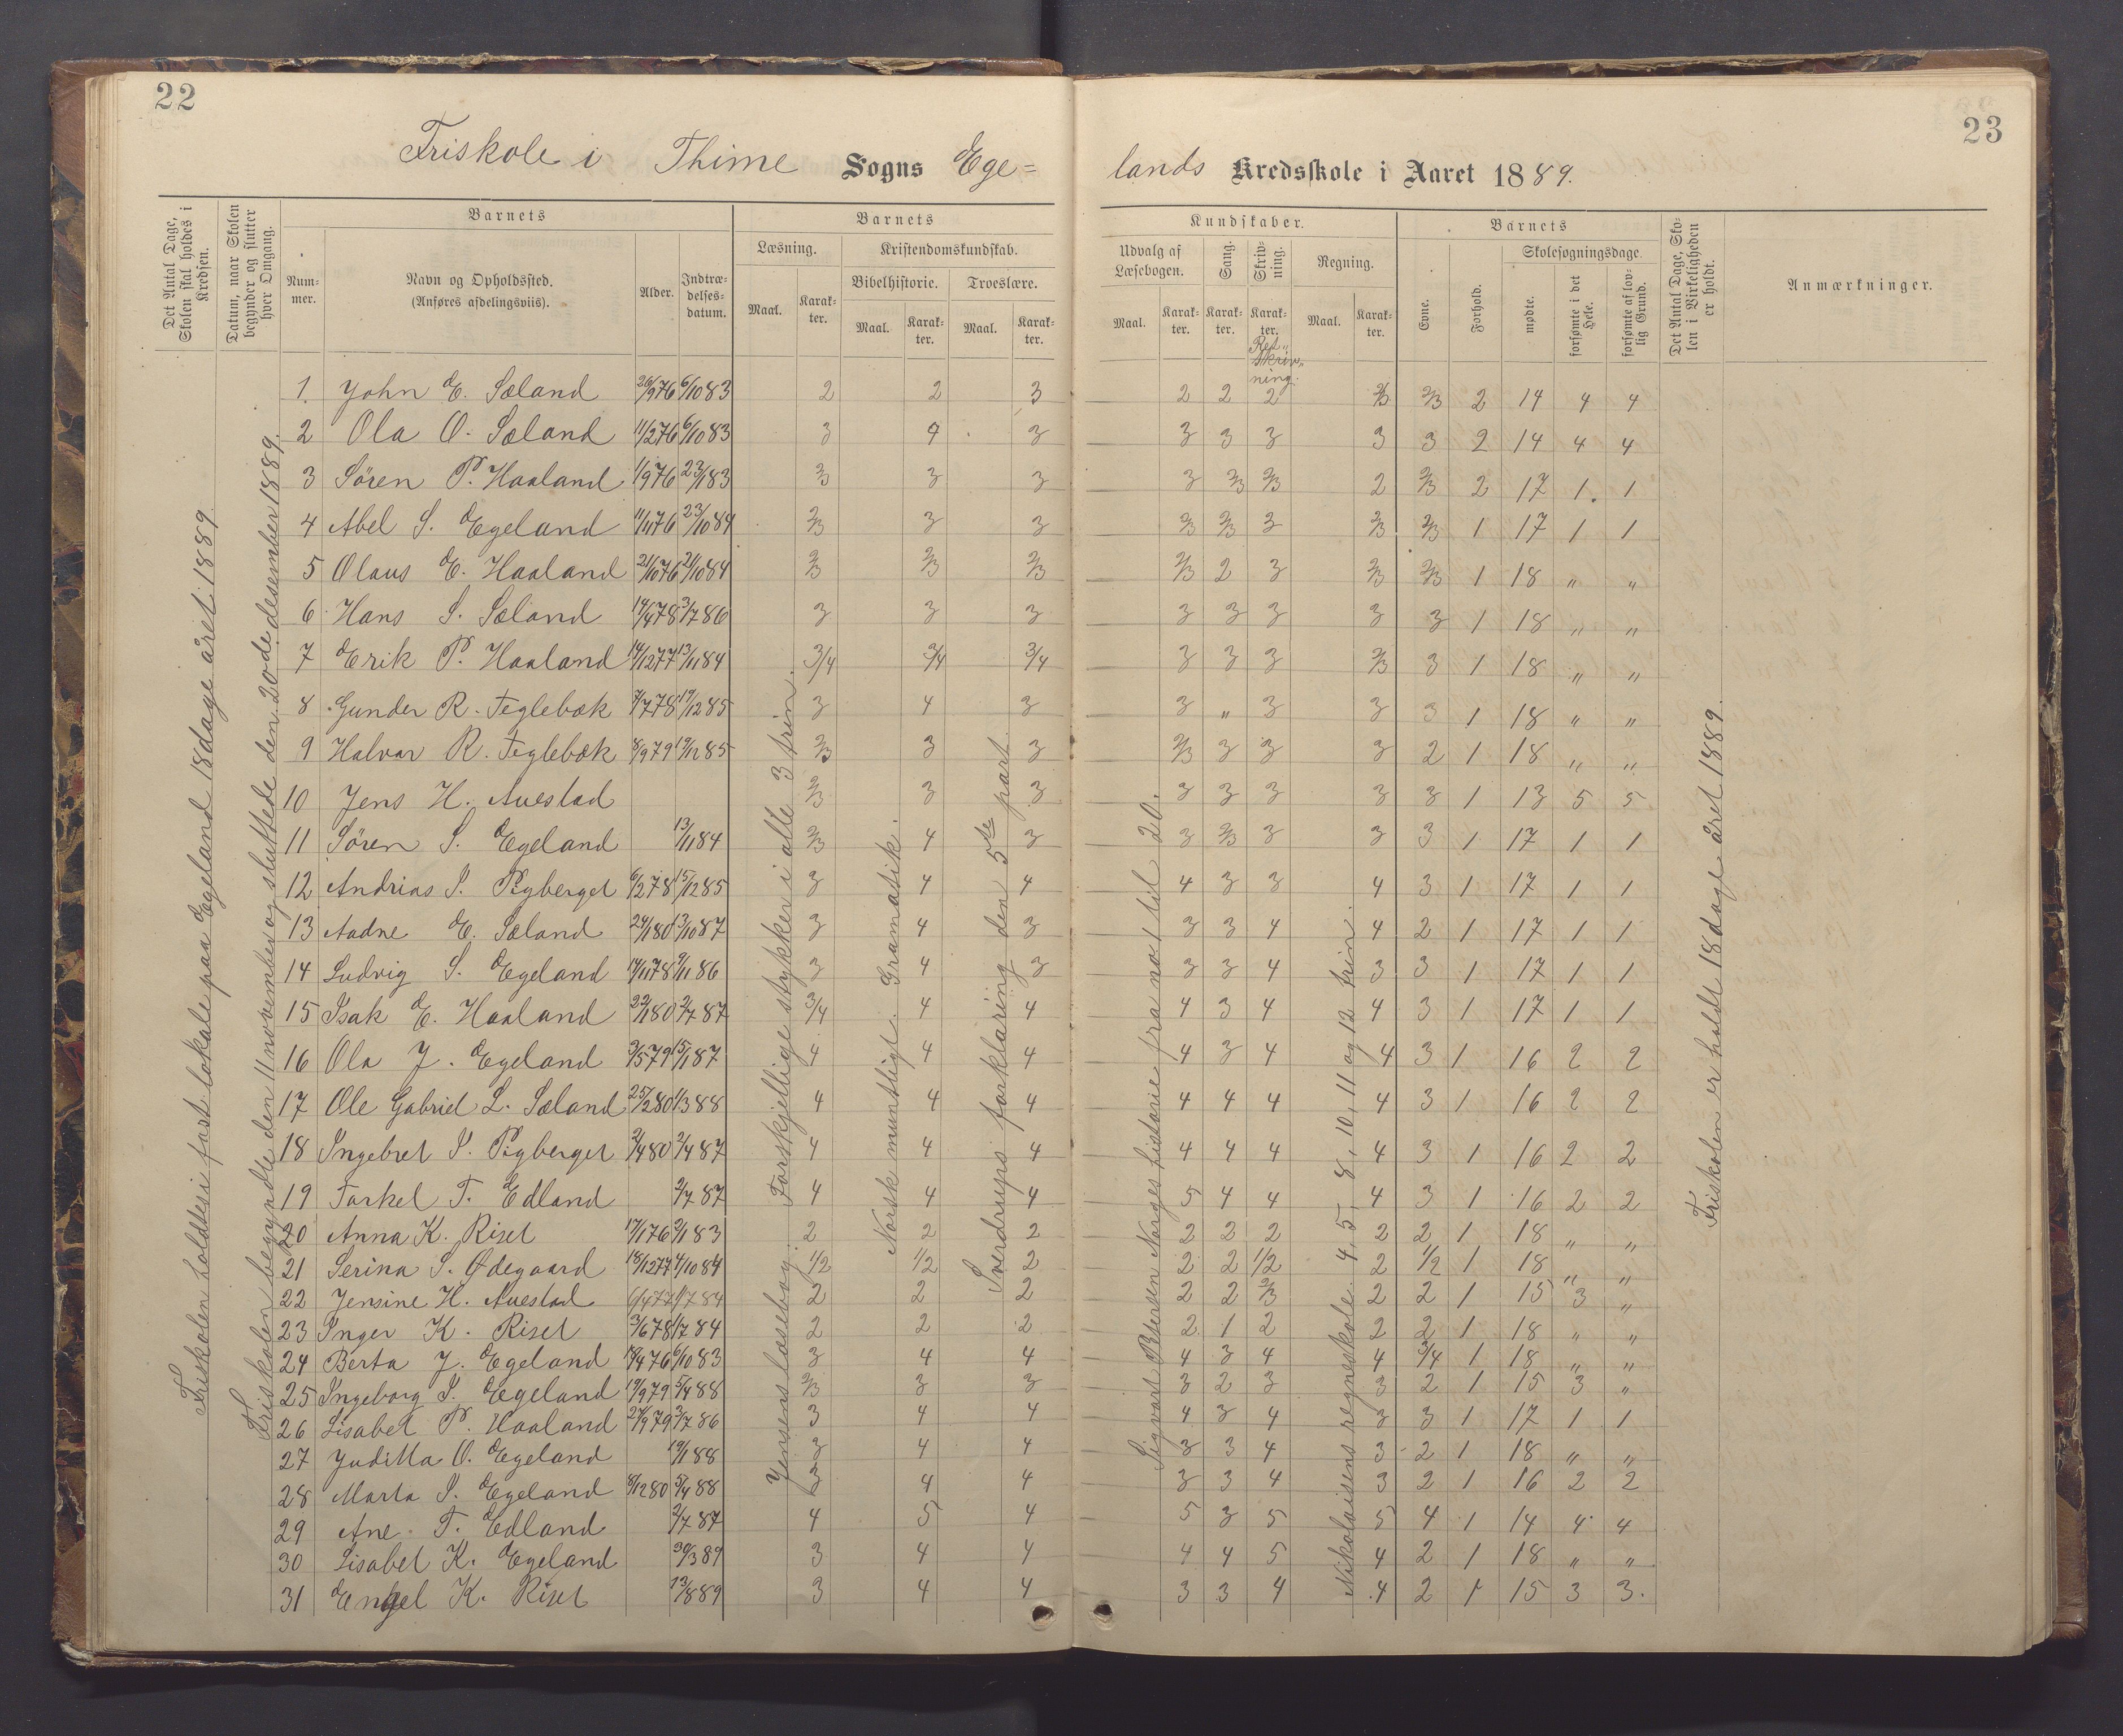 22
23
Friskole i Thime Sogns Ege=
lands Kredsskole i Aaret 1889.
Det Antal Dage, Skolen skal holdes i Kredsen.
Datum, naar Skolen begynder og slutter hver Omgang.
Barnets
Nummer.
Navn og Opholdssted.
(Anføres afdelingsviis).
Alder.
Indtrædelsesdatum.
Barnets
Læsning.
Maal.
Karakter.
Kristendomskundskab.
Bibelhistorie.
Maal.
Karakter.
Troeslære.
Maal.
Karakter.
Kundskaber.
Udvalg af Læsebogen.
Maal.
Karakter.
Sang.
Karakter.
Skrivning.
Karakter.
Retskrivning.
Regning.
Maal.
Karakter.
Barnets
Evne.
Forhold.
Skolesøgningsdage.
mødte.
forsømte i det Hele.
forsømte af lovlig Grund.
Det Antal Dage, Skolen i Virkeligheden er holdt.
Anmærkninger.
Friskolen holdtes i fast lokale paa Egeland 18 dage året 1889.
Friskolen begyndte den 11 november og sluttede den 20de desember 1889.
Jensens læsebog. Forskjellige stykker i alle 3 trin.
Norsk mundtligt. Gramatik.
Sverdrups forklaring den 5te part.
Sigvart Petersen Norges historie fra no 1 til 20.
Nikolaisens regneskole. 4, 5, 8, 10, 11 og 12 trin.
Friskolen er holdt 18 dage året 1889.
1 John E. Sæland 26/9 76 6/10 83 2 2 3 2 2 2 2/3 2/3 2 14 4 4
2 Ola O. Sæland 11/2 76 6/10 83 3 4 3 3 3 3 3 3 2 14 4 4
3 Søren P. Haaland 1/9 76 23/1 83 2/3 3 3 3 2/3 2/3 2 2/3 2 17 1 1
4 Abel S. Egeland 11/11 76 23/10 84 2/3 3 3 2/3 2/3 3 2/3 2/3 1 17 1 1
5 Olaus E. Haaland 21/10 76 21/10 84 2/3 2/3 2/3 2/3 2 3 2/3 2/3 1 18 " "
6 Hans S. Sæland 14/4 78 3/7 86 3 3 3 3 3 3 3 3 1 18 " "
7 Erik P. Haaland 14/12 77 13/11 84 3/4 3/4 3/4 3 3 3 2/3 3 1 18 " "
8 Gunder R. Teglebæk 7/7 78 19/12 85 3 4 3 3 " 3 3 3 1 18 " "
9 Halvar R. Teglebæk 8/9 79 19/12 85 2/3 3 3 2/3 3 3 3 2 1 18 " "
10 Jens H. Auestad 2/3 3 3 3 3 3 3 3 1 13 5 5
11 Søren S. Egeland 13/11 84 2/3 4 3 3 2/3 3 3 3 1 17 1 1
12 Andrias I. Rygberget 6/2 78 15/12 85 3 4 4 4 3 3 4 3 1 17 1 1
13 Aadne E. Sæland 24/1 80 13/10 87 3 4 3 3 3 4 4 2 1 17 1 1
14 Ludvig S. Egeland 17/11 78 9/11 86 3 4 3 3 3 4 3 3 1 17 1 1
15 Isak E. Haaland 22/1 80 2/7 87 3/4 4 4 4 3 4 4 3 1 17 1 1
16 Ola J. Egeland 3/5 79 15/1 87 4 4 4 4 3 4 4 3 1 16 2 2
17 Ole Gabriel L. Sæland 25/2 80 1/3 88 4 4 4 4 4 4 4 3 1 16 2 2
18 Ingebret I. Rygberget 2/4 80 2/4 87 4 4 4 4 4 4 4 3 1 16 2 2
19 Torkel T. Edland 2/7 87 4 4 4 5 4 4 4 3 1 16 2 2
20 Anna K. Risel 17/1 76 2/1 83 2 2 2 2 2 2 2 2 1 18 " "
21 Serina S. Ødegaard 18/12 77 4/10 84 1/2 1/2 2 2 2 1/2 2 1/2 1 18 " "
22 Jensine H. Auestad 6/4 77 1/7 84 2 2 2 2 2 2/3 2 2 1 15 3 "
23 Inger K. Risel 3/6 78 1/7 84 2 2 2 2 1 2 2 2 1 18 " "
24 Berta J. Egeland 18/4 76 6/10 83 3 4 4 4 3 4 4 3/4 1 18 " "
25 Ingeborg I. Egeland 19/9 79 5/4 88 2/3 3 3 3 2 3 3 2 1 15 3 "
26 Lisabet P. Haaland 27/9 79 3/7 86 3 4 4 4 3 4 3 3 1 17 1 1
27 Juditta O. Egeland 19/1 88 3 4 4 3 3 4 3 2 1 18 " "
28 Marta I. Egeland 8/12 80 5/4 88 3 4 4 3 3 4 3 2 1 16 2 2
29 Ane T. Edland 2/7 87 4 5 4 5 3 5 5 4 1 14 4 4
30 Lisabet K. Egeland 30/3 89 3 4 4 4 4 5 4 2 1 18 " "
31 Engel K. Risel 13/8 89 3 4 4 3 3 4 4 2 1 15 3 3.